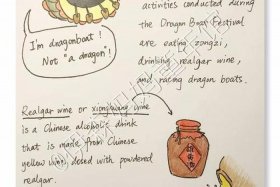 activities conducted during
the Dragon Boat Festival
are eating zongzi,
drinking realgar wine,
and racing dragon boats.
I'm dragonboat!
Not "a dragon"!
Realgar wine or xionghuang wine
is a Chinese alcoholic drink
that is made from Chinese
yellow wine dosed with powdered
realgar.
雄黄酒